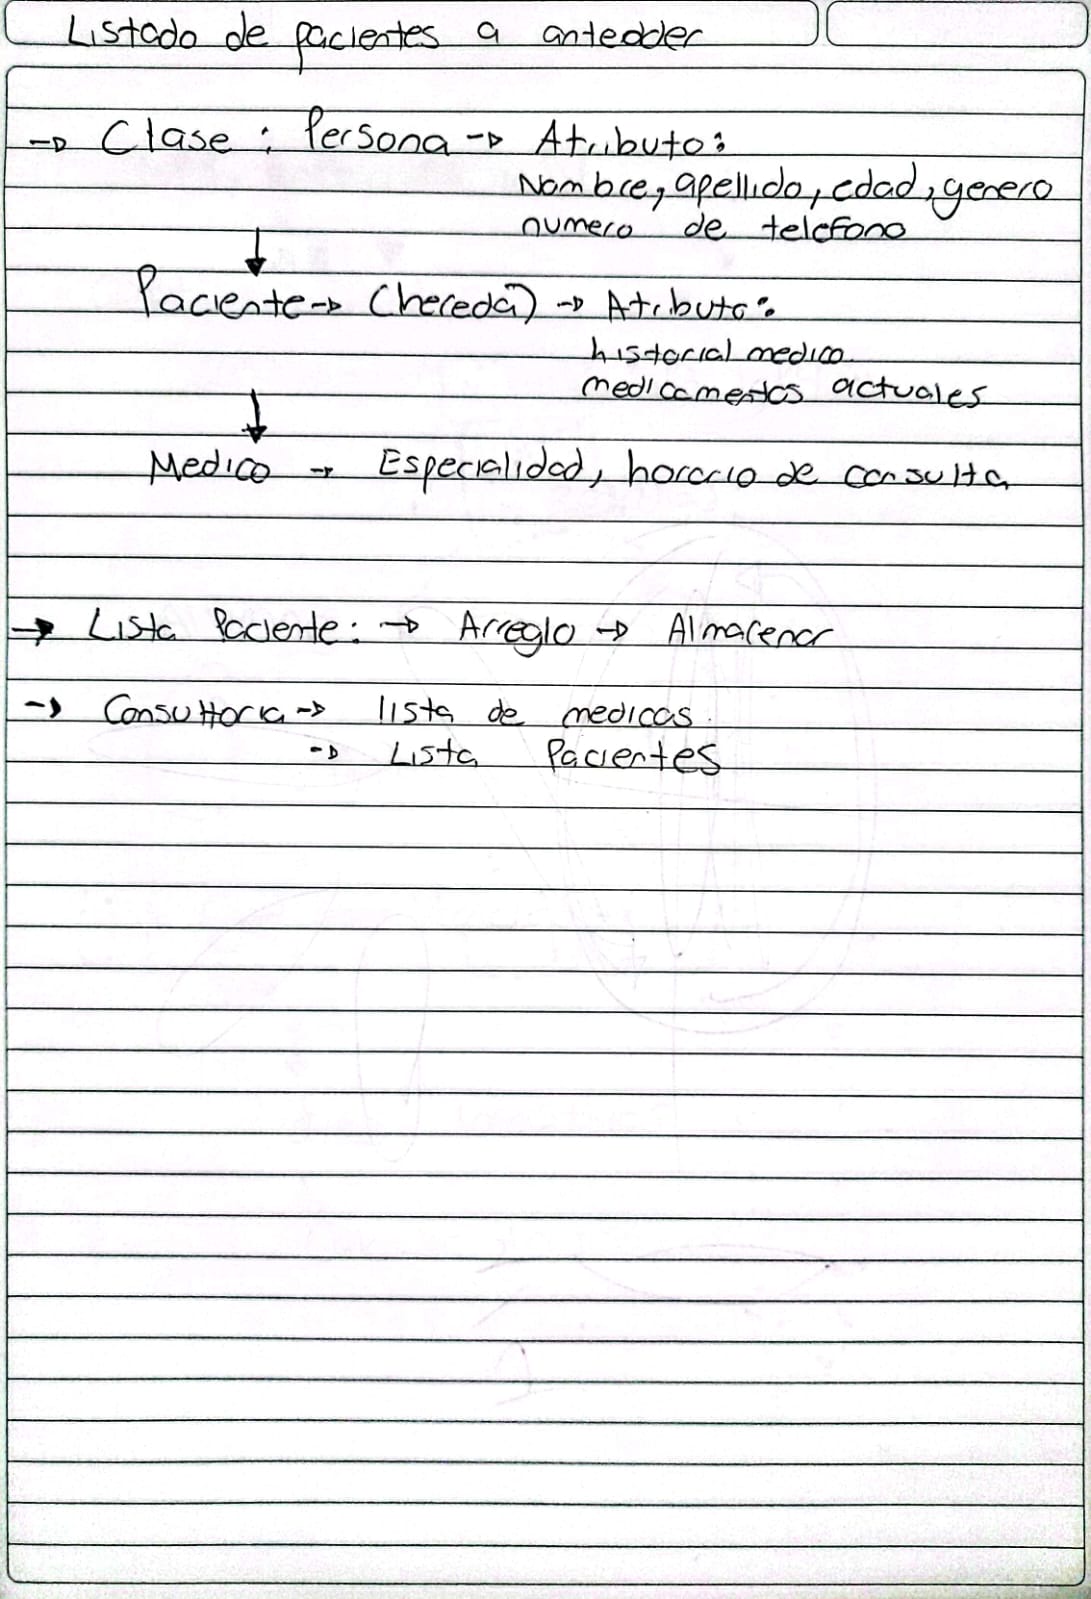 Listado de pacientes a antedder
→ Clase : Persona → Atributo:
Nombre, apellido, edad, genero
numero de telefono
↓
Paciente → (hereda) → Atributo:
historial medico
medicamentos actuales
↓
Medico → Especialidad, horario de consulta
→ Lista Paciente: → Arreglo → Almacenar
→ Consultoria → lista de medicos.
→ Lista Pacientes